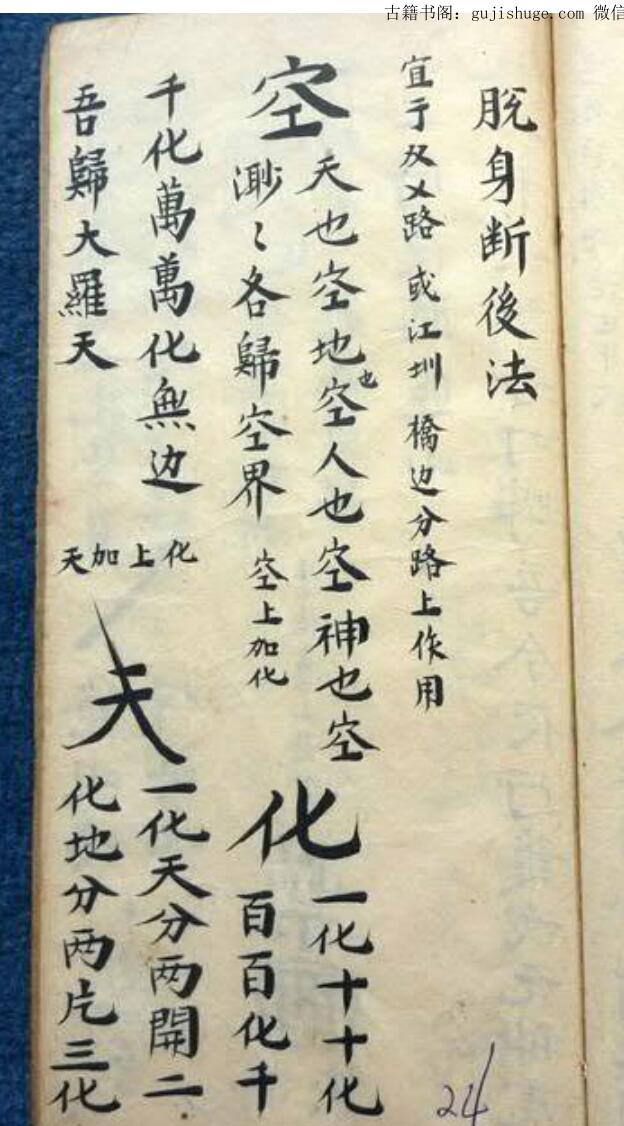 古籍书阁：gujishuge.com 微信
脫身断後法
宜于双乂路或江圳橋边分路上作用
空
天也空地也空人也空神也空
渺〻各歸空界
空上加化
化
一化十十化
百百化千
千化萬萬化無边
吾歸大羅天
化上加天
天
一化天分两開二
化地分两片三化
24